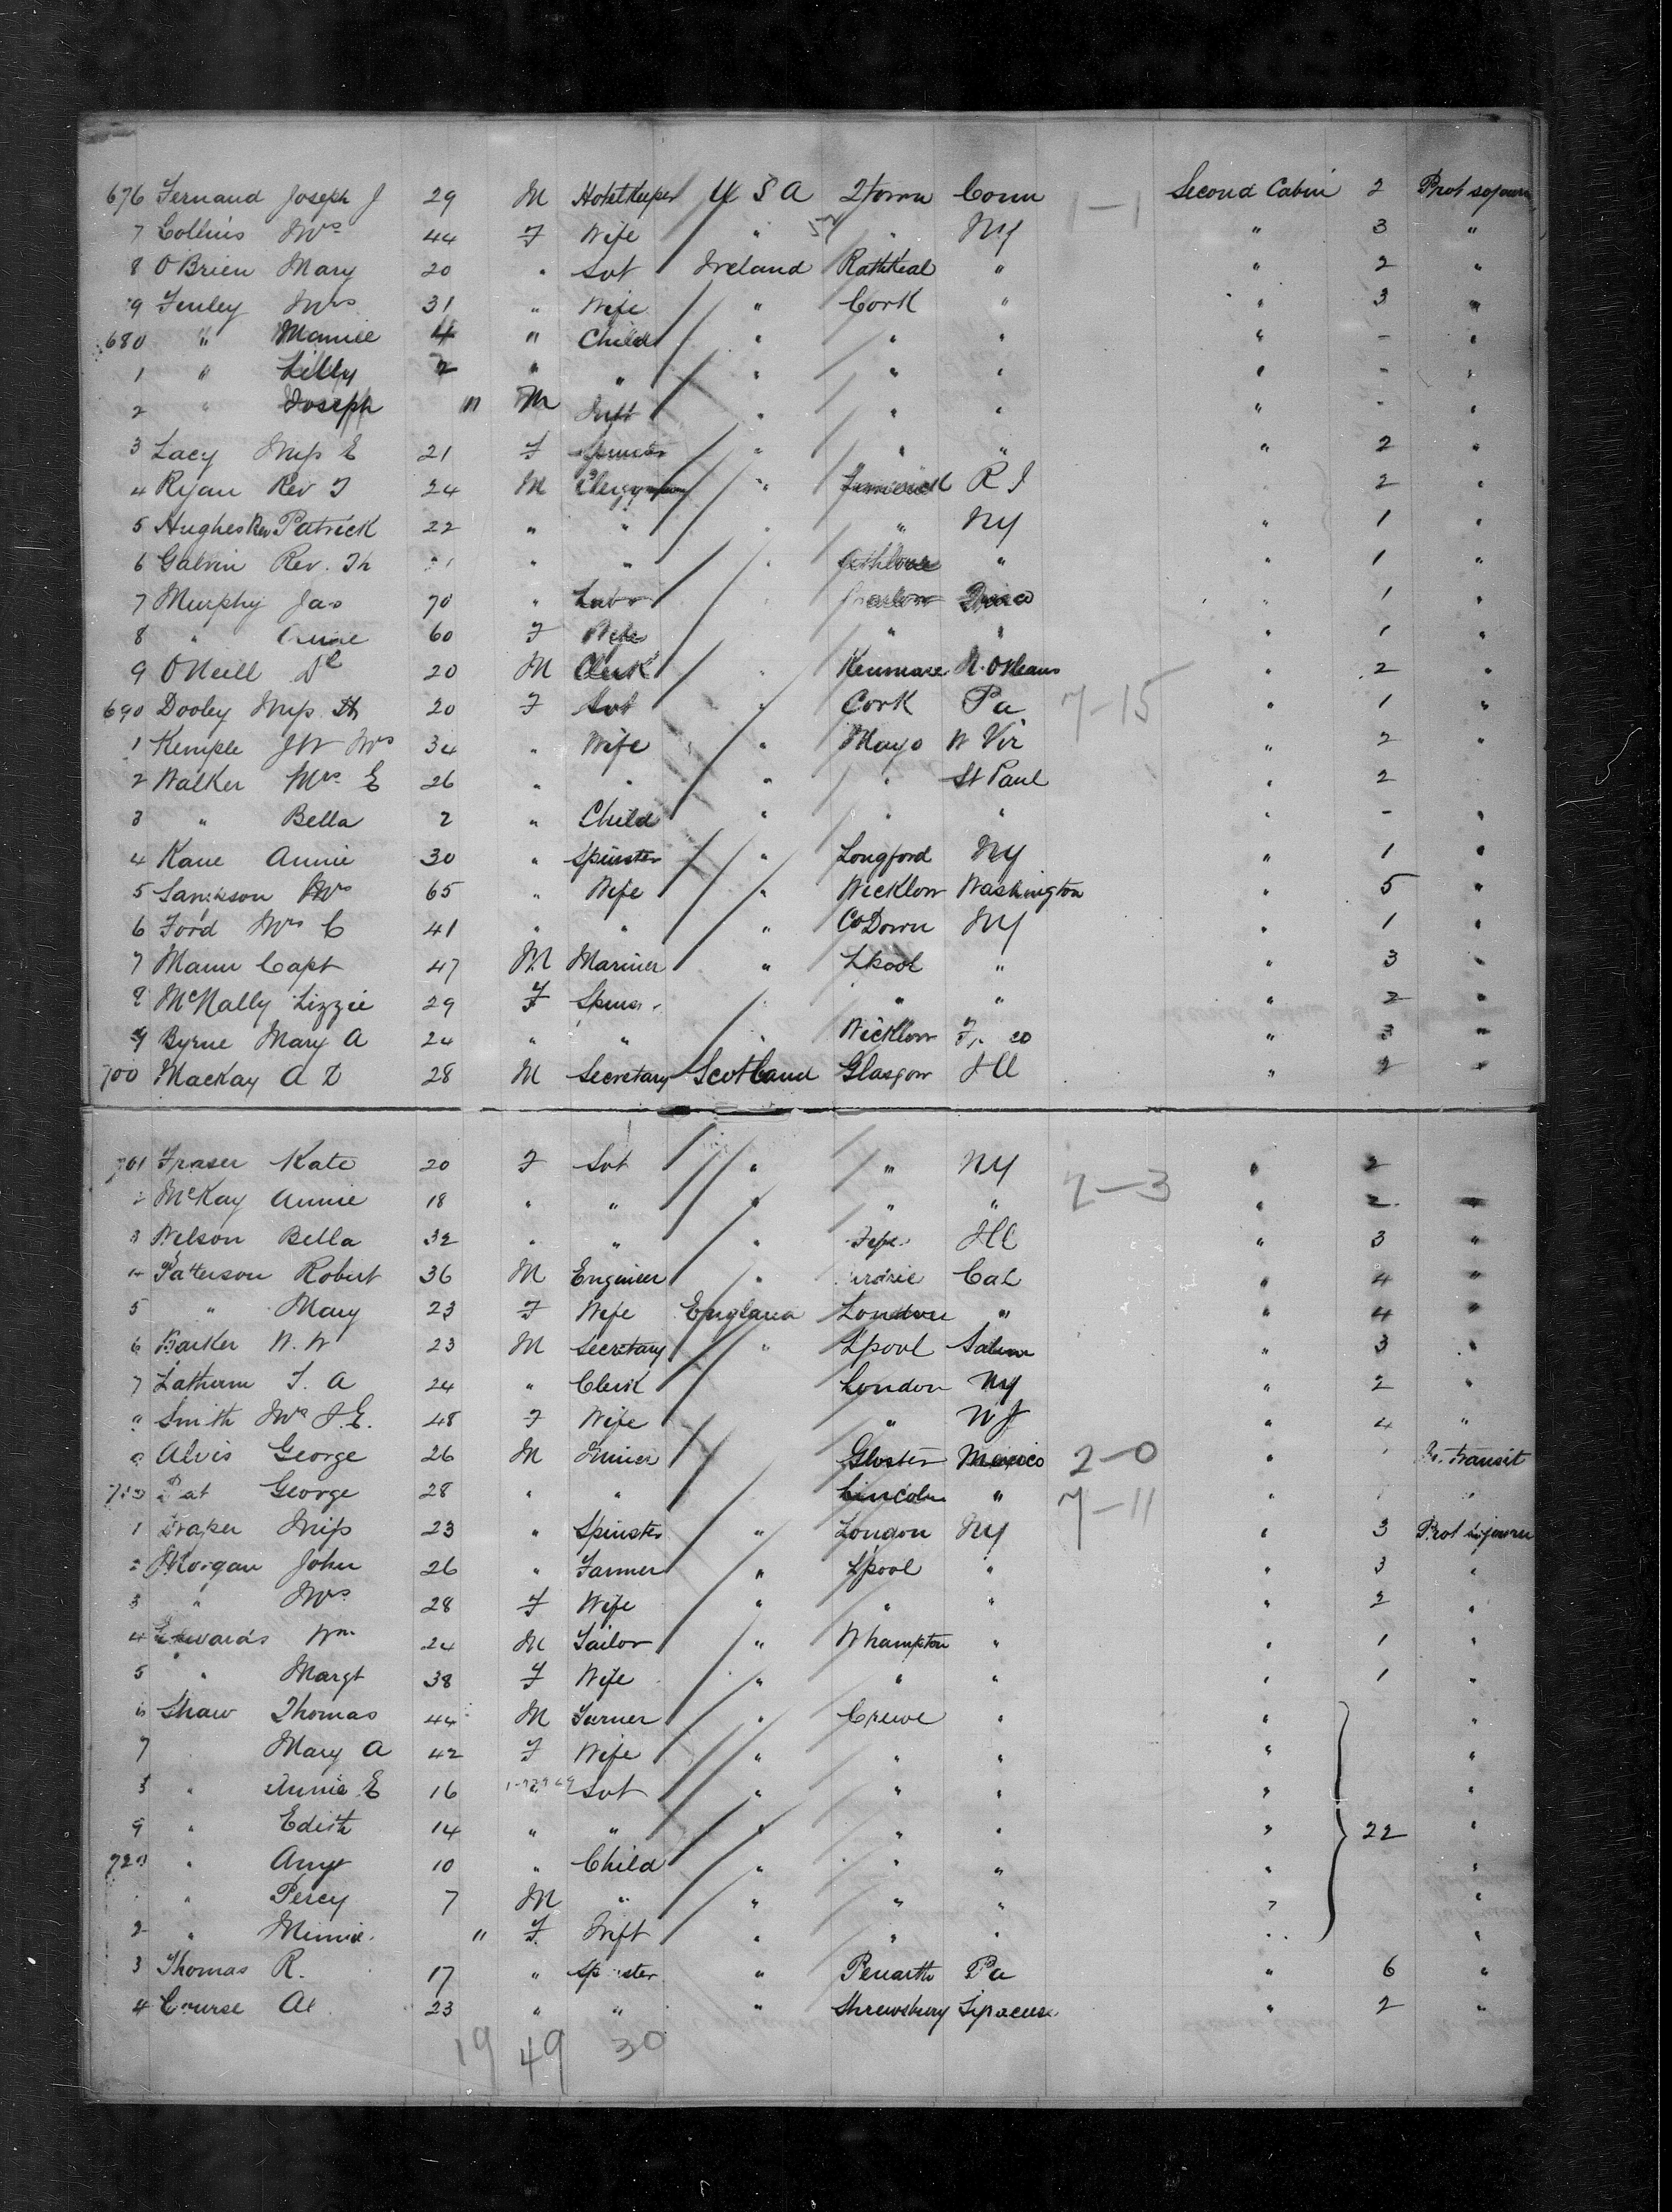 676 Fernand Joseph J 29 M Hotel Keeper U S A 2town Conn 1-1 Second Cabin 2 Prot sojourn
7 Collins Mrs 44 F Wife " " NY " 3 "
8 O'Brien Mary 20 " Svt Ireland Rathkeal " " 2 "
9 Fenley Mrs 31 " Wife " Cork " " 3 "
680 " Mamie 4 " Child " " " " - "
1 " Lilly 2 " " " " " " - "
2 " Joseph M Inft " " " " - "
3 Lacy Miss E 21 F Spinster " " " " 2 "
4 Ryan Rev T 24 M Clergyman " Limerick R I 2 "
5 Hughes Rev Patrick 22 " " " " NY " 1 "
6 Galvin Rev. Th " " " " " 1 "
7 Murphy Jas 70 " Labr " " 1 "
8 " Anne 60 F Wife " " " 1 "
9 O'Neill Dl 20 M Clerk " Kenmare N. Orleans " 2 "
690 Dooley Miss 20 F Svt " Cork Pa 7-15 " 1 "
1 Kemple JW Mrs 34 " Wife " Mayo W Vir " 2 "
2 Walker Mrs E 26 " " " " St Paul " 2
3 " Bella 2 " Child " " " " - "
4 Kane Annie 30 " Spinster " Longford NY " 1 "
5 Sampson Mrs 65 " Wife " Wicklow Washington " 5 "
6 Ford Mrs C 41 " " " Co Down NY " 1 "
7 Mann Capt 47 M Mariner " Lpool " " 3 "
8 McNally Lizzie 29 F " " " " 2 "
9 Byrne Mary A 24 " " " Wicklow " 3 "
700 Mackay A D 28 M Secretary Scotland Glasgow Ill " 2 "
701 Fraser Kate 20 F Svt " " NY " 2
2 McKay Annie 18 " " " " " 2-3 " 2 "
3 Nelson Bella 32 " " " Ill " 3 "
4 Patterson Robert 36 M Engineer " Cal " 4 "
5 " Mary 23 F Wife England London " " 4 "
6 Barker W. W 23 M Secretary " Lpool Salem " 3 "
7 Lathum T. A 24 " Clerk London NY " 2 "
8 Smith Mrs J. E. 48 F Wife " NJ " 4 "
9 Alvis George 26 M Miner Gloster Mexico 2-0 " In transit
710 George 28 " " Lincoln " 7-11 " "
1 Draper Miss 23 " Spinster " London NY " 3 Prot sojourn
2 Morgan John 26 " Farmer " Lpool " " 3 "
3 " Mrs 28 F Wife " " " " 2 "
4 Edwards Wm 24 M Tailor " Whampton " " 1 "
5 " Margt 38 F Wife " " " " 1 "
6 Shaw Thomas 44 M Turner " Crewe " " "
7 Mary A 42 F Wife " " " " "
8 " Annie E 16 " Svt " " " " "
9 " Edith 14 " " " " " " 22 "
720 " Amy 10 " Child " " " " "
" Percy 7 M " " " " " "
2 " Minnie " F Inft " " " " "
3 Thomas R. 17 " Spinster " Penarth Pa " 6 "
4 Course Al 23 " " " Shrewsbury Syracuse " 2 "
19 49 30